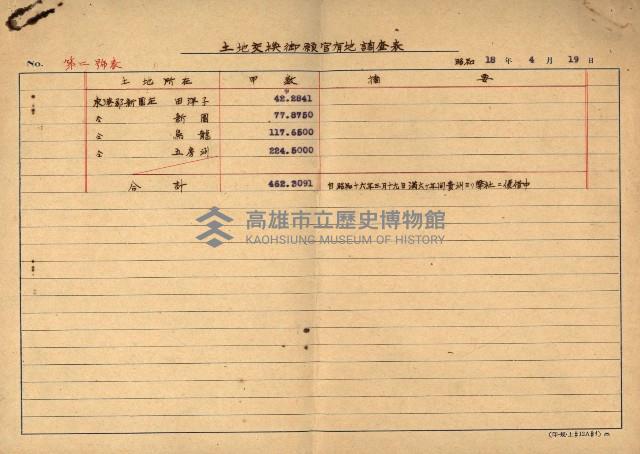 土地交換御願官有地調查表
No. 第二號表 昭和 18 年 4 月 19 日
土地所在 甲數 摘要
東港郡新園庄 田洋子 42.2841
仝 新園 77.8750
仝 烏龍 117.6500
仝 五房洲 224.5000
合計 462.3091 自昭和十六年三月十九日滿六ヶ年間貴州ヨリ弊社ニ復借中
高雄市立歷史博物館
KAOHSIUNG MUSEUM OF HISTORY